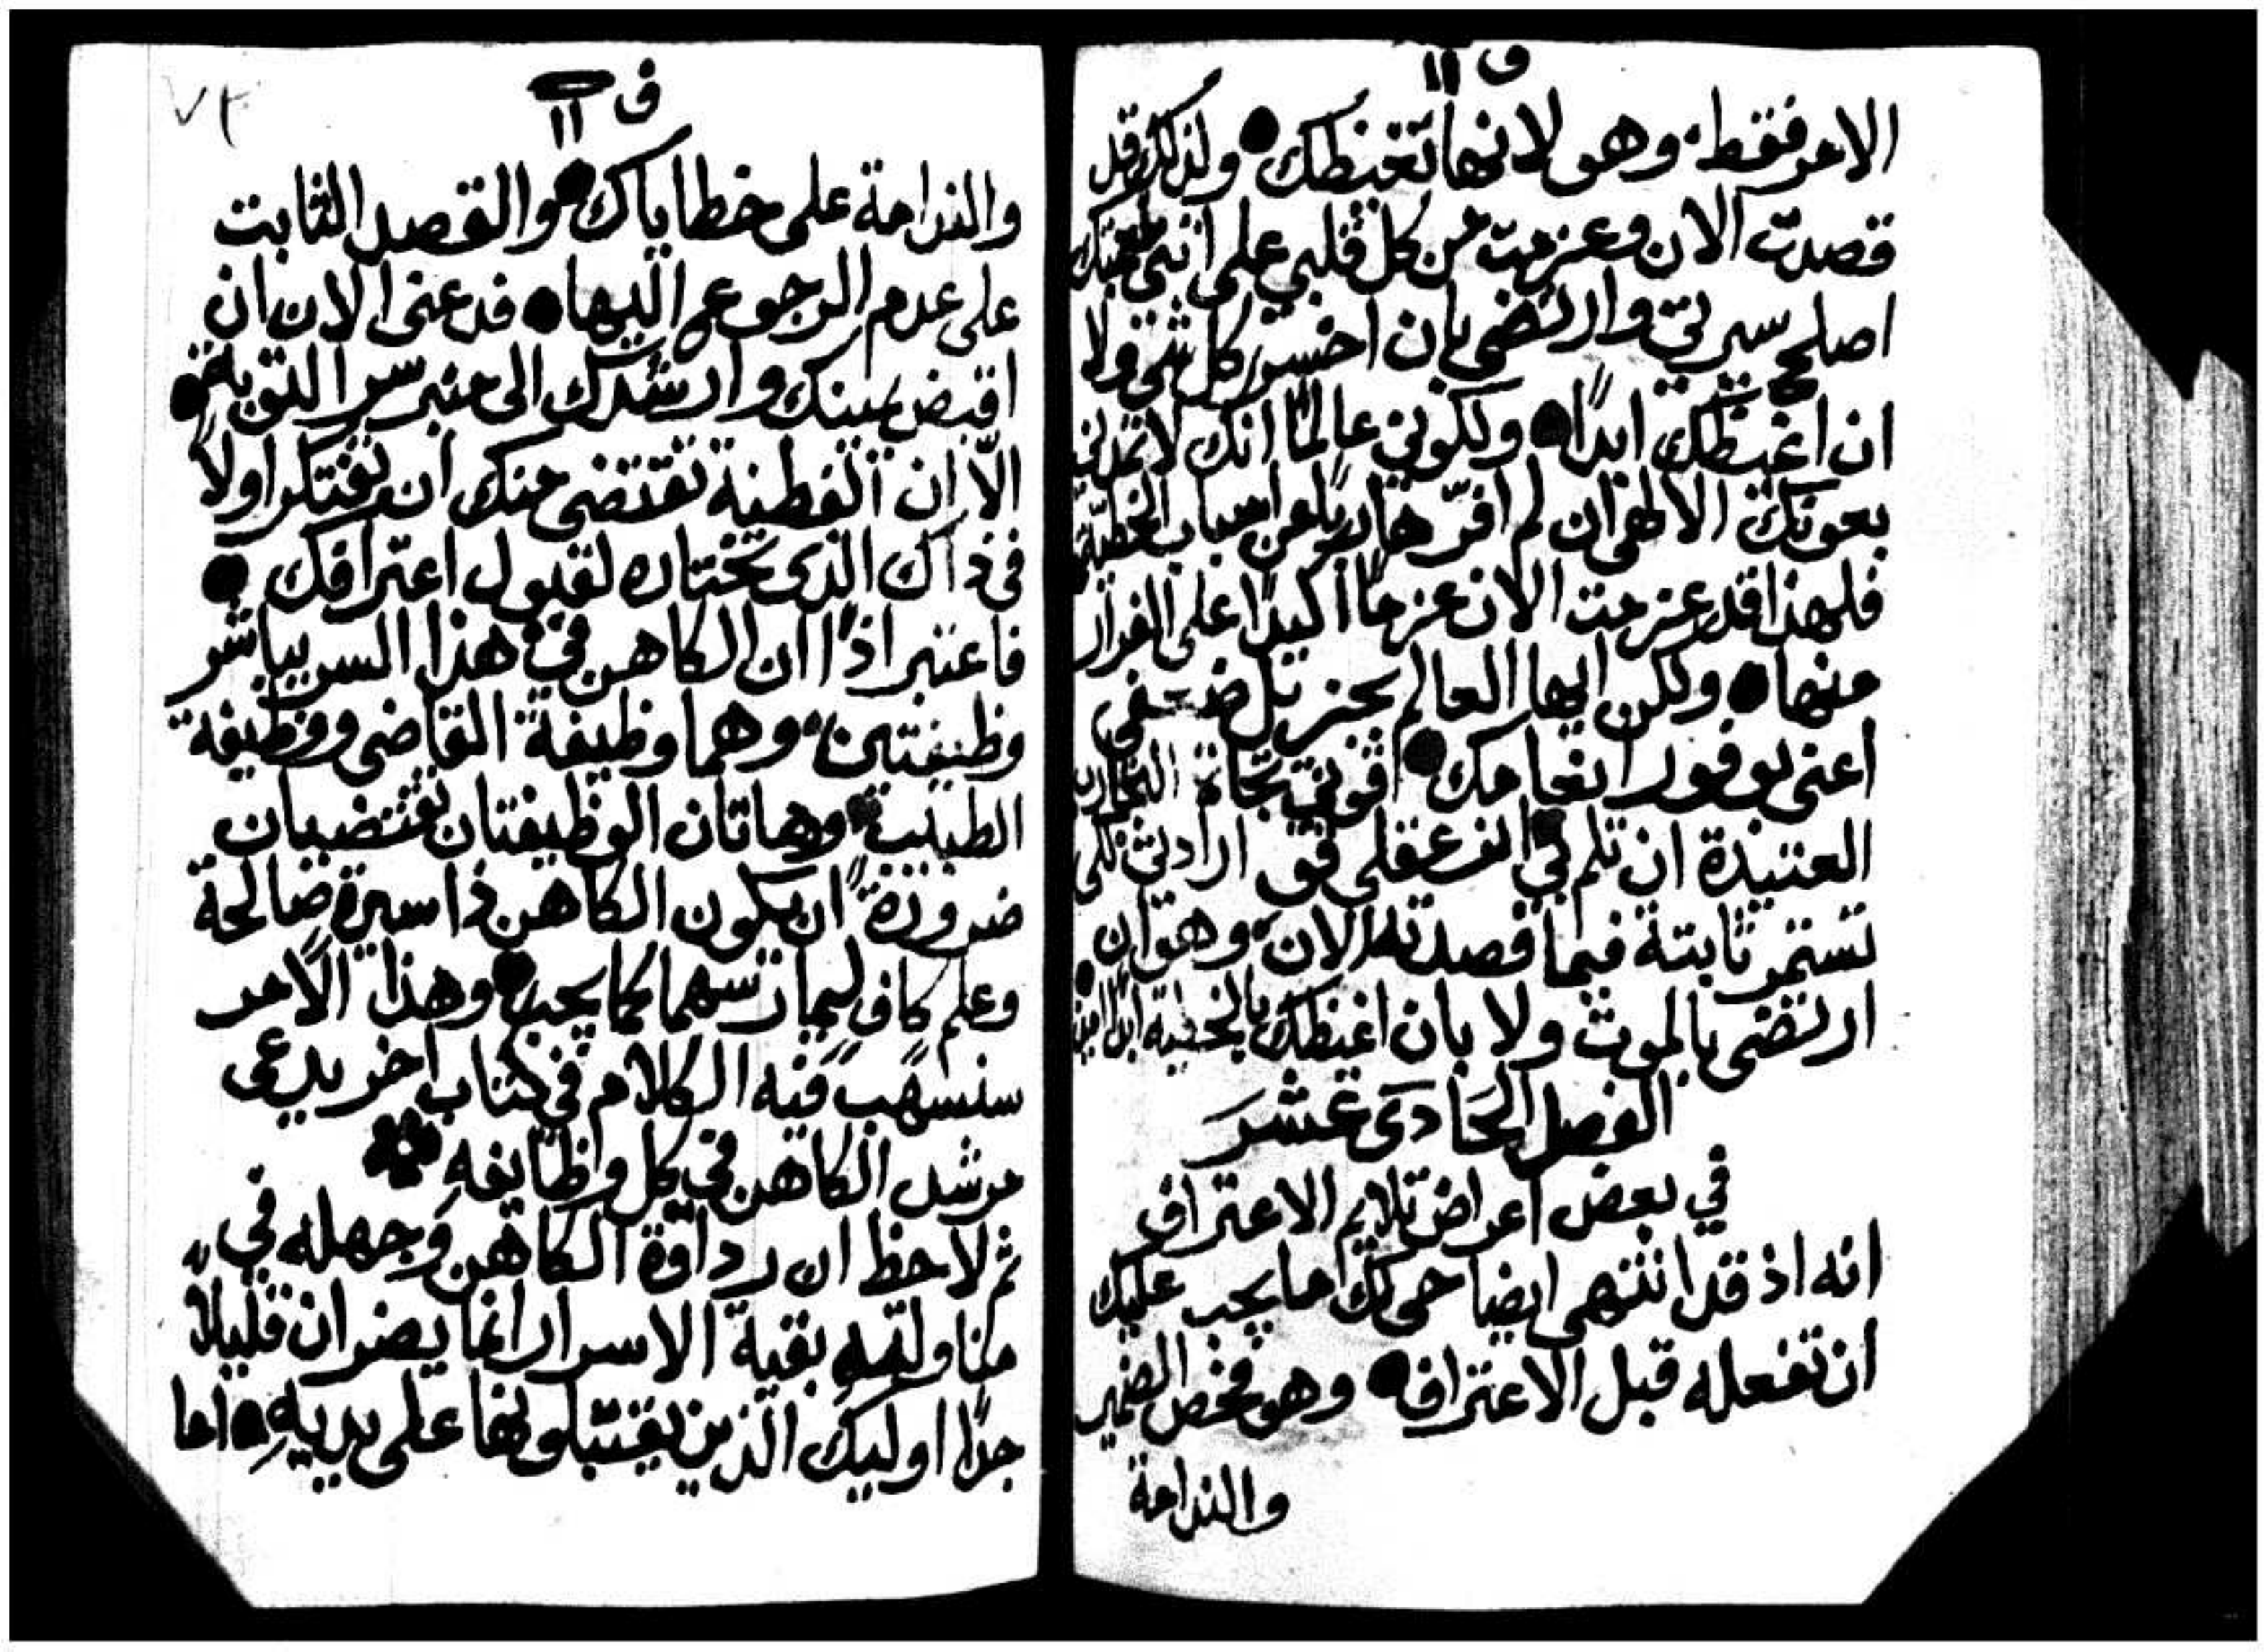 ف ١١
الامر فقط. وهو لانها تغيظك ● ولذلك قد
قصدت الان وعزمت من كل قلبي على انني بمعونتك
اصلح سيرتي وارتضى بان اخسر كل شي ولا
ان اغيظك ابدًا ● ولكوني عالمًا انك لا تمدني
بعونك الالهي ان لم افرّ هاربًا من اسباب الخطيّة
فلهذا قد عزمت الان عزمًا اكيدًا على الفرار
منها ● ولكن ايها العالم بجزيل ضعفي
اعني بوفور انعامك ● قوني تجاة التجارب
العتيدة ان تلم بي ● ارادتي لكى
تستمر ثابتة فيما قصدته الان، وهو ان
ارتضى بالموت ولا بان اغيظك بالخطية ابدًا امين
الفصل الحَادى عَشَرَ
في بعض اعراض تلايم الاعتراف
انه اذ قد انتهى ايضاحى لك ما يجب عليك
ان تفعله قبل الاعتراف ● وهو فحص الضمير
والندامة
ف ١١
٧٢
والندامة على خطاياك ● والقصد الثابت
على عدم الرجوع اليها ● فدعنى الان ان
اقبض يمينك وارشدك الى منبر سر التوبة ●
الّا ان الفطنة تقتضى منك ان تفتكر اولًا
في ذاك الذى تختاره لقبول اعترافك ●
فاعتبر اذًا ان الكاهن في هذا السر يباشر
وظيفتين. وهما وظيفة القاضى ووظيفة
الطبيب ● وهاتان الوظيفتان تقتضيان
ضرورةً ان يكون الكاهن ذا سيرة صالحة
وعلم كافٍ ليمارسهما كما يجب ● وهذا الامر
سنسهب فيه الكلام في كتاب اخر يدعى
مرشد الكاهن في كل وظايفهِ
ثم لاحظ ان رداوة الكاهن وجهله في
مناولتهِ بقية الاسرار انما يضران قليلًا
جدًا اوليك الذين يقتبلونها على يديهِ ● اما